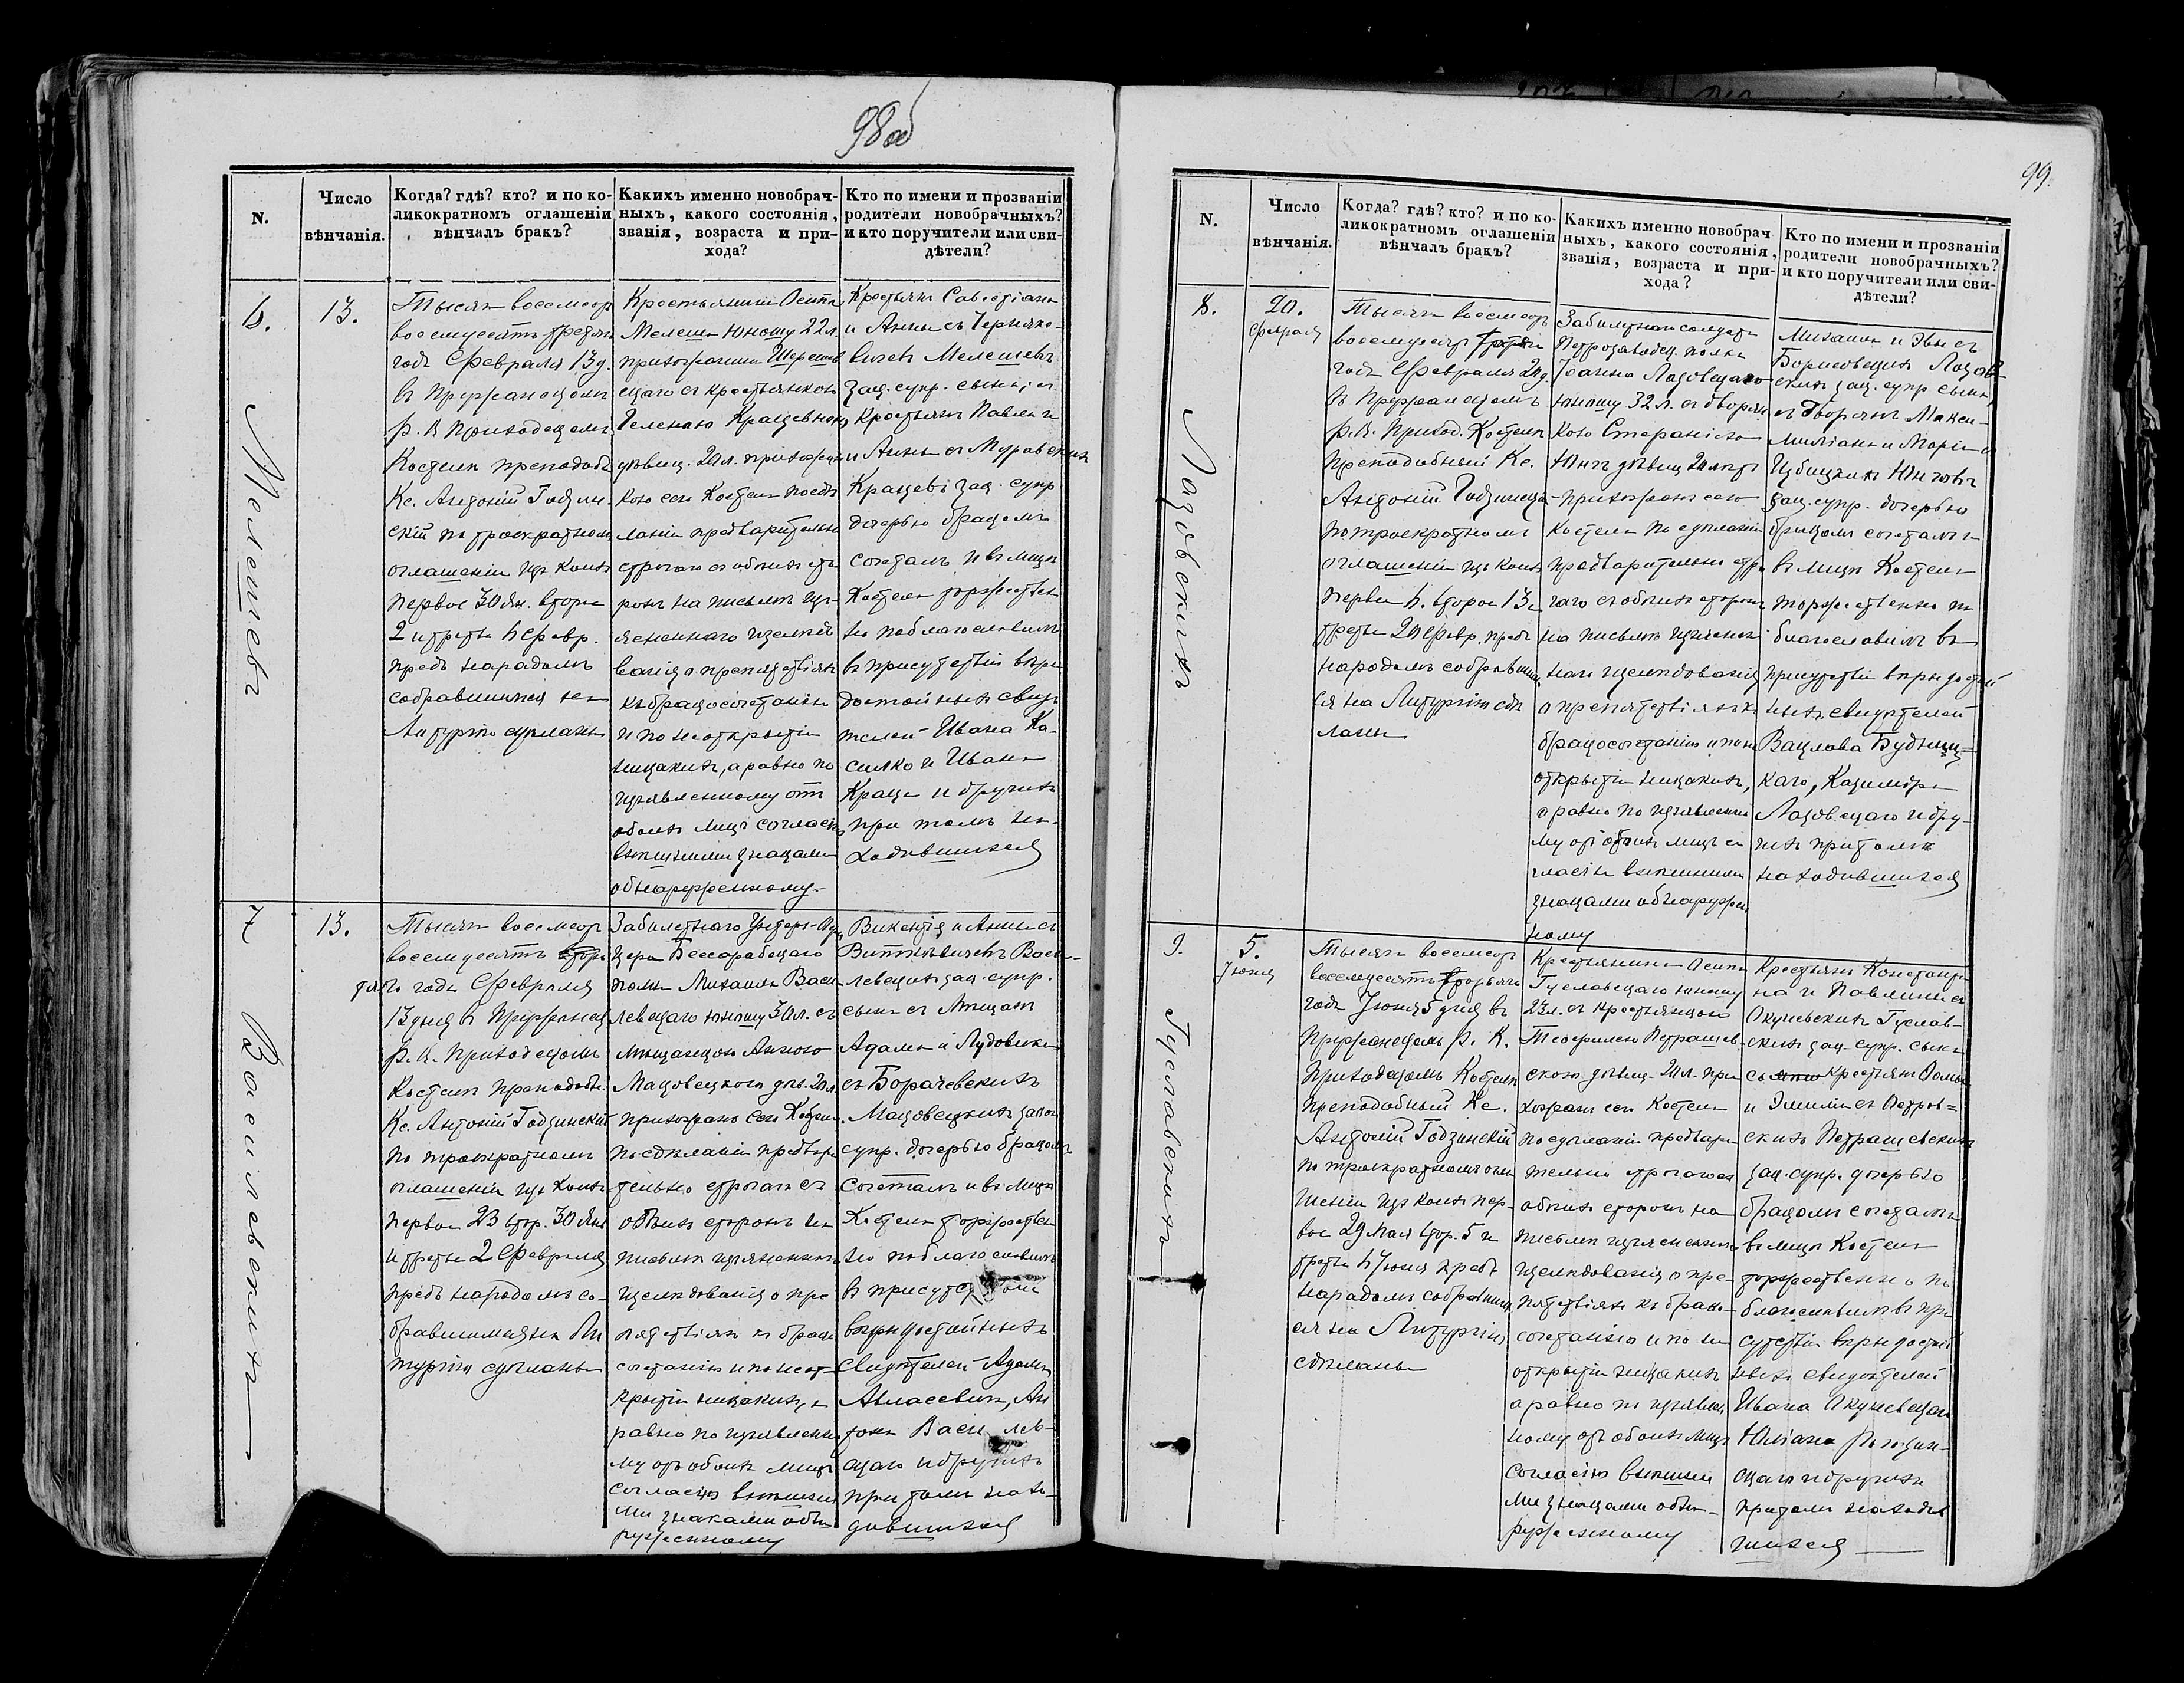 98об
N.
Число
вѣнчанія.
Когда? гдѣ? кто? и по ко-
ликократномъ оглашеніи
вѣнчалъ бракъ?
Какихъ именно новобрач-
ныхъ, какого состоянія,
званія, возраста и при-
хода?
Кто по имени и прозваніи
родители новобрачныхъ?
и кто поручители или сви-
дѣтели?
6.
13.
Мелешевъ
Тысяча восемсотъ
восемдесятъ третьяго
годъ Февраля 13 д.
въ Пружанскомъ
р. К. Приходскомъ
Костелѣ преподоб.
Кс. Антоній Годзин-
скій по троекратномъ
оглашеніи изъ коихъ
первое 30 Янв. второе
2 и третье 6 Февр.
предъ народомъ
собравшимся на
Литургію сдѣланы
Крестьянина Осипа
Мелеша юношу 22 л.
прихожанина Шерешев
скаго съ крестьянкою
Геленою Кращевною
дѣвиц. 20 л. прихожан
кою сего Костела по сдѣ
ланіи предварительно
строгаго съ обоихъ сто
ронъ на письмѣ изъ-
ясненнаго изслѣдо
ванія о препятствіяхъ
къ бракосочетанію
и по неоткрытіи
никакихъ, а равно по
изъявленному отъ
обоихъ лицъ согласію
внѣшними знаками
обнаруженному.
Крестьянъ Савостіана
и Анны съ Черняко-
вичевъ Мелешевъ
зак. супр. сына, съ
крестьянъ Павла и
и Анны съ Муравскихъ
Кращевъ зак. супр
дочерью бракомъ
сочеталъ и въ лицѣ
Костела торжествен
но поблагословилъ
въ присутствіи вѣро
достойныхъ свидѣ
телей Ивана Ка-
силко и Ивана
Краца и другихъ
при томъ на-
ходившихся
7
13.
Василевскихъ
Тысяча восемсотъ
восемдесятъ втор
тьяго года Февраля
13 дня въ Пружанск
р. К. Приходскомъ
Костелѣ преподоб.
Кс. Антоній Годзинскій
по троекратномъ
оглашеніи изъ коихъ
первое 23 втор. 30 Янв
и третье 2 Февраля
предъ народомъ со-
бравшимся на Ли
тургію сдѣланы
Забилетнаго Унтеръ-Офи
цера Бессарабскаго
полка Михаила Васи
левскаго юношу 30 л. съ
мѣщанкою Анною
Мацовецкою дѣв. 20 л.
прихожанъ сего Костела.
по сдѣланіи предвари
тельно строгаго съ
обоихъ сторонъ на
письмѣ изъясненнаго
изслѣдованія о пре
пятствіяхъ къ брако
сочетанію и по неот-
крытіи никакихъ, а
равно по изъявленно
му отъ обоихъ лицъ
согласію внѣшни
ми знаками обна
руженному
Викентія и Анны съ
Виткевичевъ Васи-
левскихъ зак. супр.
сына съ мѣщанъ
Адама и Лудовики
съ Борачевскихъ
Мацовецкихъ закон
супр. дочерью бракомъ
сочеталъ и въ лицѣ
Костела торжествен
но поблагословилъ
въ присутствіи
вѣродостойныхъ
свидѣтелей Адама
Авласевича, Ан
тона Василев-
скаго и другихъ
при томъ нахо-
дившихся
99.
N.
Число
вѣнчанія.
Когда? гдѣ? кто? и по ко-
ликократномъ оглашеніи
вѣнчалъ бракъ?
Какихъ именно новобрач
ныхъ, какого состоянія,
званія, возраста и при-
хода?
Кто по имени и прозваніи
родители новобрачныхъ?
и кто поручители или сви-
дѣтели?
8.
20.
Февраля
Лазовскихъ
Тысяча восемсотъ
восемдесятъ третьяго
годъ Февраля 20 д.
въ Пружанскомъ
р. К. Приход. Костелѣ
преподобный Кс.
Антоній Годзинскій
по троекратномъ
оглашеніи изъ коихъ
первое 6. второе 13 и
третье 20 Февр. предъ
народомъ собравшим
ся на Литургію сдѣ
ланы
Забилетнаго солдата
Петрозаводск. полка
Іоанна Лазовскаго
юношу 32 л. съ дворян
кою Стефаніею
Юнгъ дѣвиц 20 лѣтъ
прихожанъ сего
Костела по сдѣланіи
предварительно стро
гаго съ обоихъ сторонъ
на письмѣ изъяснен
наго изслѣдованія
о препятствіяхъ къ
бракосочетанію и по не
открытіи никакихъ,
а равно по изъявленно
му отъ обоихъ лицъ со
гласію внѣшними
знаками обнаружен
ному
Михаила и Эвы съ
Борисовскихъ Лазов-
скихъ зак. супр сына
съ дворянъ Макси-
миліана и Маріи съ
Избицкихъ Юнговъ
зак. супр. дочерью
бракомъ сочеталъ и
въ лицѣ Костела
торжественно по
благословилъ въ
присутствіи вѣродостой
ныхъ свидѣтелей
Вацлава Будзиц-
каго, Казимира
Лазовскаго и дру-
гихъ при томъ
находившихся
9.
5.
Іюня
Гуславскихъ
Тысяча восемсотъ
восемдесятъ третьяго
годъ Іюня 5 дня въ
Пружанскомъ р. К.
Приходскомъ Костелѣ
преподобный Кс.
Антоній Годзинскій
по троекратномъ огла
шеніи изъ коихъ пер-
вое 29 Мая втор. 5 и
третье 6 Іюня предъ
народомъ собравшим
ся на Литургію
сдѣланы
Крестьянина Осипа
Гуславскаго юношу
23 л. съ крестьянкою
Теофилею Петрашев-
скою дѣвиц. 20 л. при
хожанъ сего Костела
по сдѣланіи предвари
тельно строгаго съ
обоихъ сторонъ на
письмѣ изъясненнаго
изслѣдованія о пре-
пятствіяхъ къ брако-
сочетанію и по не
открытіи никакихъ
а равно по изъявлен
ному отъ обоихъ лицъ
согласію внѣшни
ми знаками обна-
руженному
Крестьянъ Констан
на и Павлины съ
Окушевскихъ Гуслав-
скихъ зак. супр. сына
съ крестьянъ Фомы
и Эмиліи съ Петров-
скихъ Петрашевскихъ
зак. супр. дочерью
бракомъ сочеталъ и
въ лицѣ Костела
торжественно по
благословилъ въ при
сутствіи вѣродостой
ныхъ свидѣтелей
Ивана Окушевскаго
Юліана
скаго и другихъ
при томъ находив
шихся